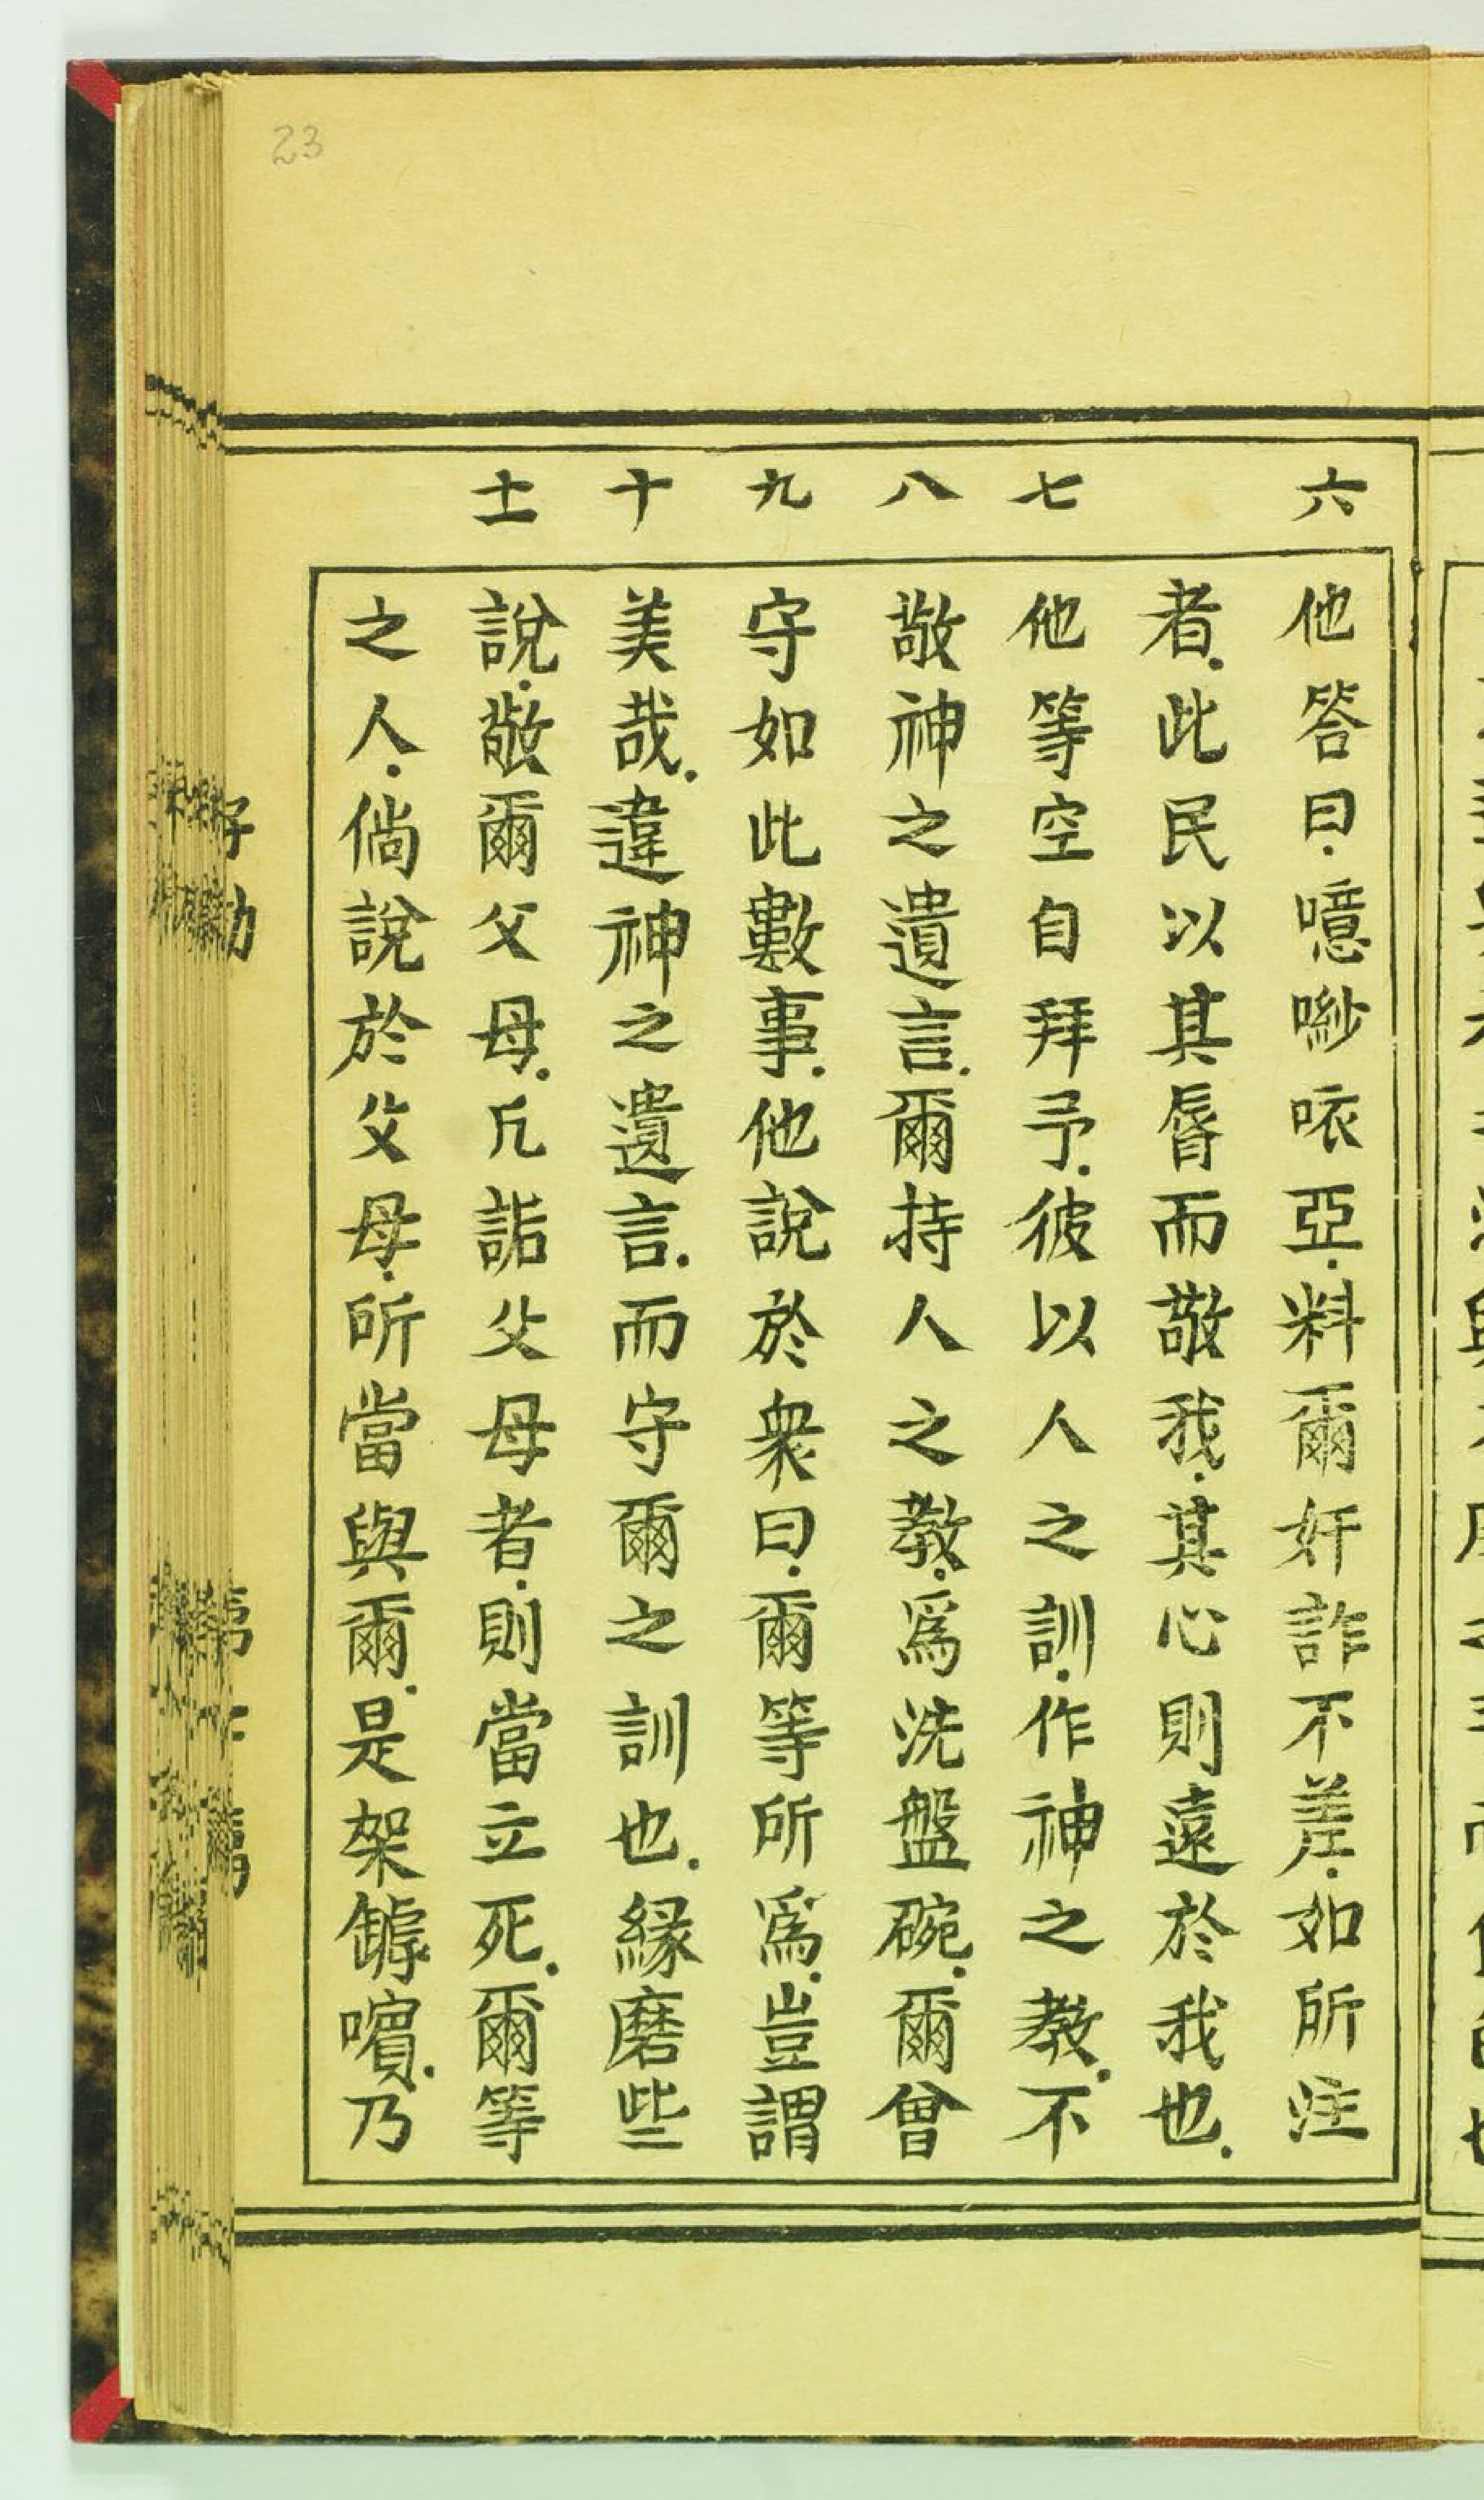 23
六
他答曰.噫嘮咴亞.料爾奸詐不差.如所註
者.此民以其脣而敬我.其心則遠於我也.
七
他等空自拜予.彼以人之訓.作神之教.不
八
敬神之遺言.爾持人之教.爲洗盤碗.爾曾
九
守如此數事.他說於衆曰.爾等所爲.豈謂
十
美哉.違神之遺言.而守爾之訓也.緣磨些
十一
說.敬爾父母.凡詬父母者.則當立死.爾等
之人.倘說於父母.所當與爾.是架罅嚬.乃